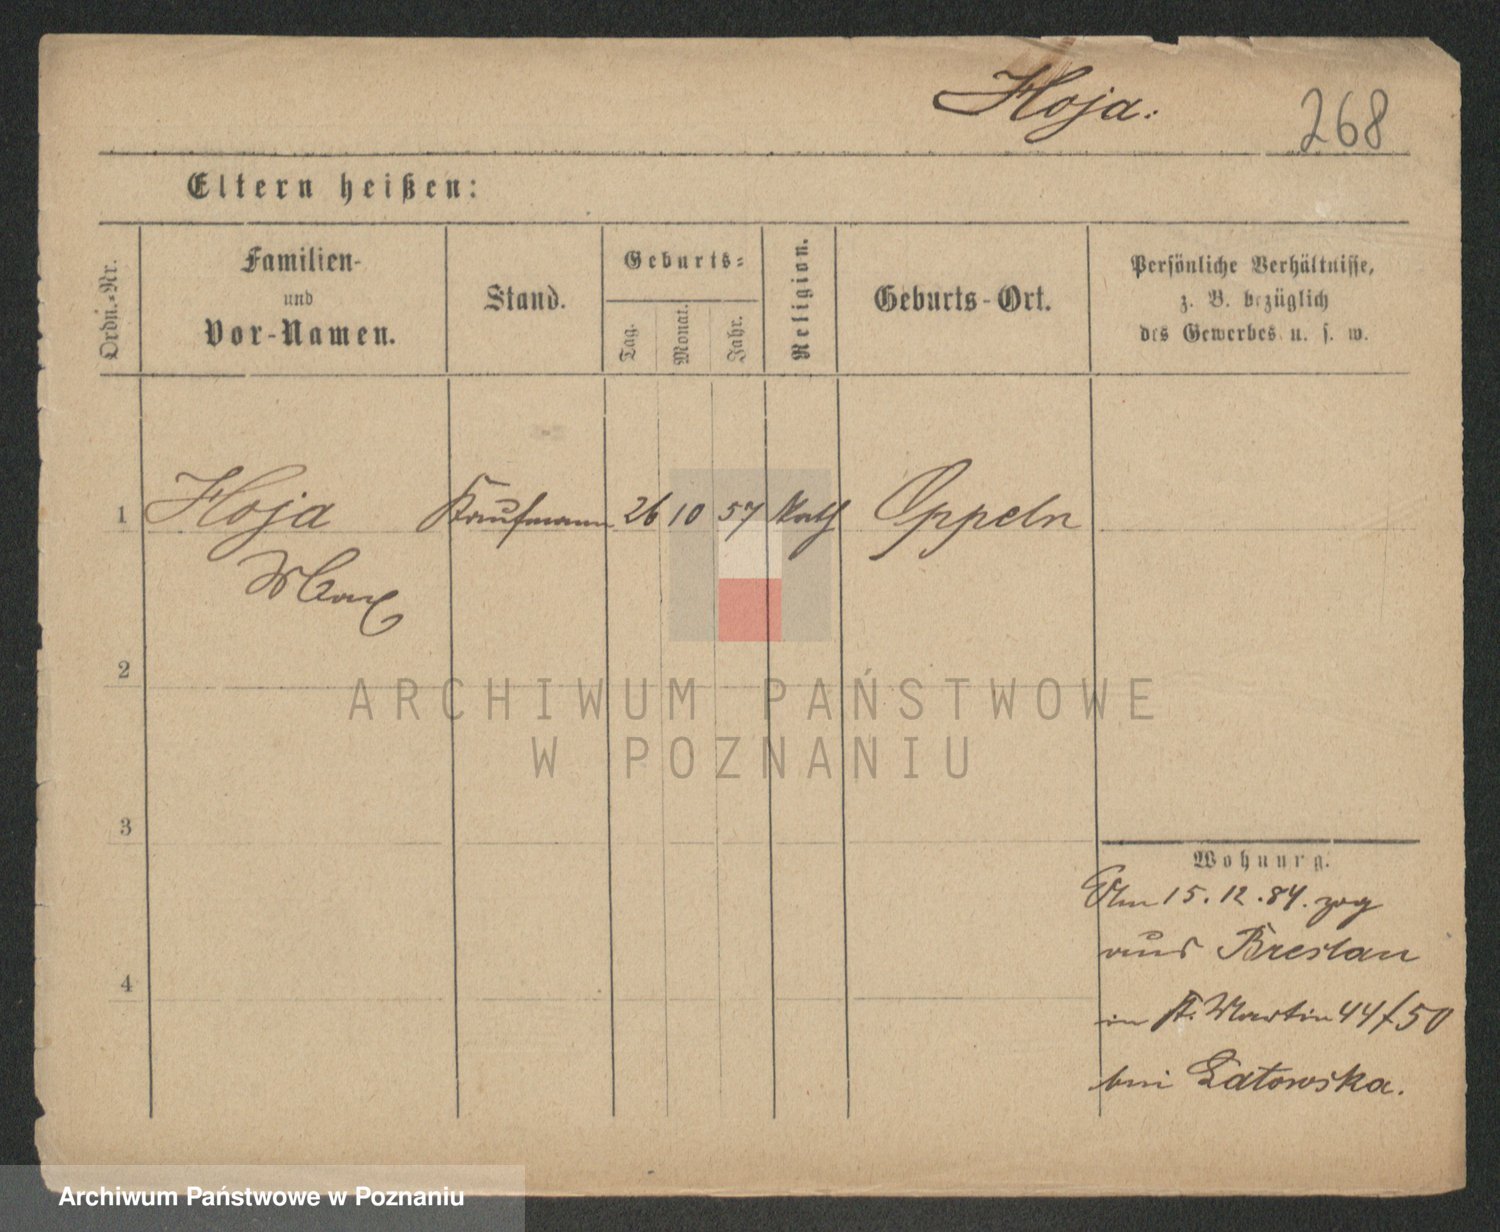 Hoja.
268
Eltern heißen:
Ordn.-Nr.
Familien-
und
Vor-Namen.
Stand.
Geburts-
Tag.
Monat.
Jahr.
Religion.
Geburts-Ort.
Persönliche Verhältnisse,
z. B. bezüglich
des Gewerbes u. s. w.
1 Hoja Kaufmann 26 10 57 Kath Oppeln
Max
2
ARCHIWUM PAŃSTWOWE
W POZNANIU
3
Wohnung.
Am 15.12.84. zog
aus Breslau
4
in St. Martin 44/50
bei Latowska.
Archiwum Państwowe w Poznaniu